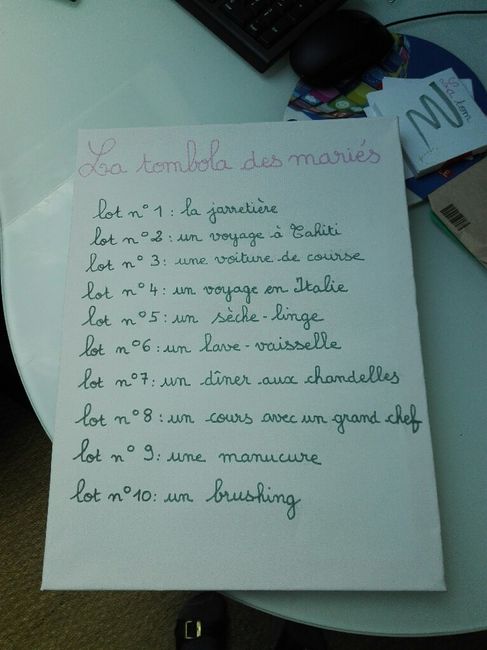 La tombola des mariés
lot n° 1 : la jarretière
lot n° 2 : un voyage à Tahiti
lot n° 3 : une voiture de course
lot n° 4 : un voyage en Italie
lot n° 5 : un sèche-linge
lot n° 6 : un lave-vaisselle
lot n° 7 : un dîner aux chandelles
lot n° 8 : un cours avec un grand chef
lot n° 9 : une manucure
lot n° 10 : un brushing
La tom